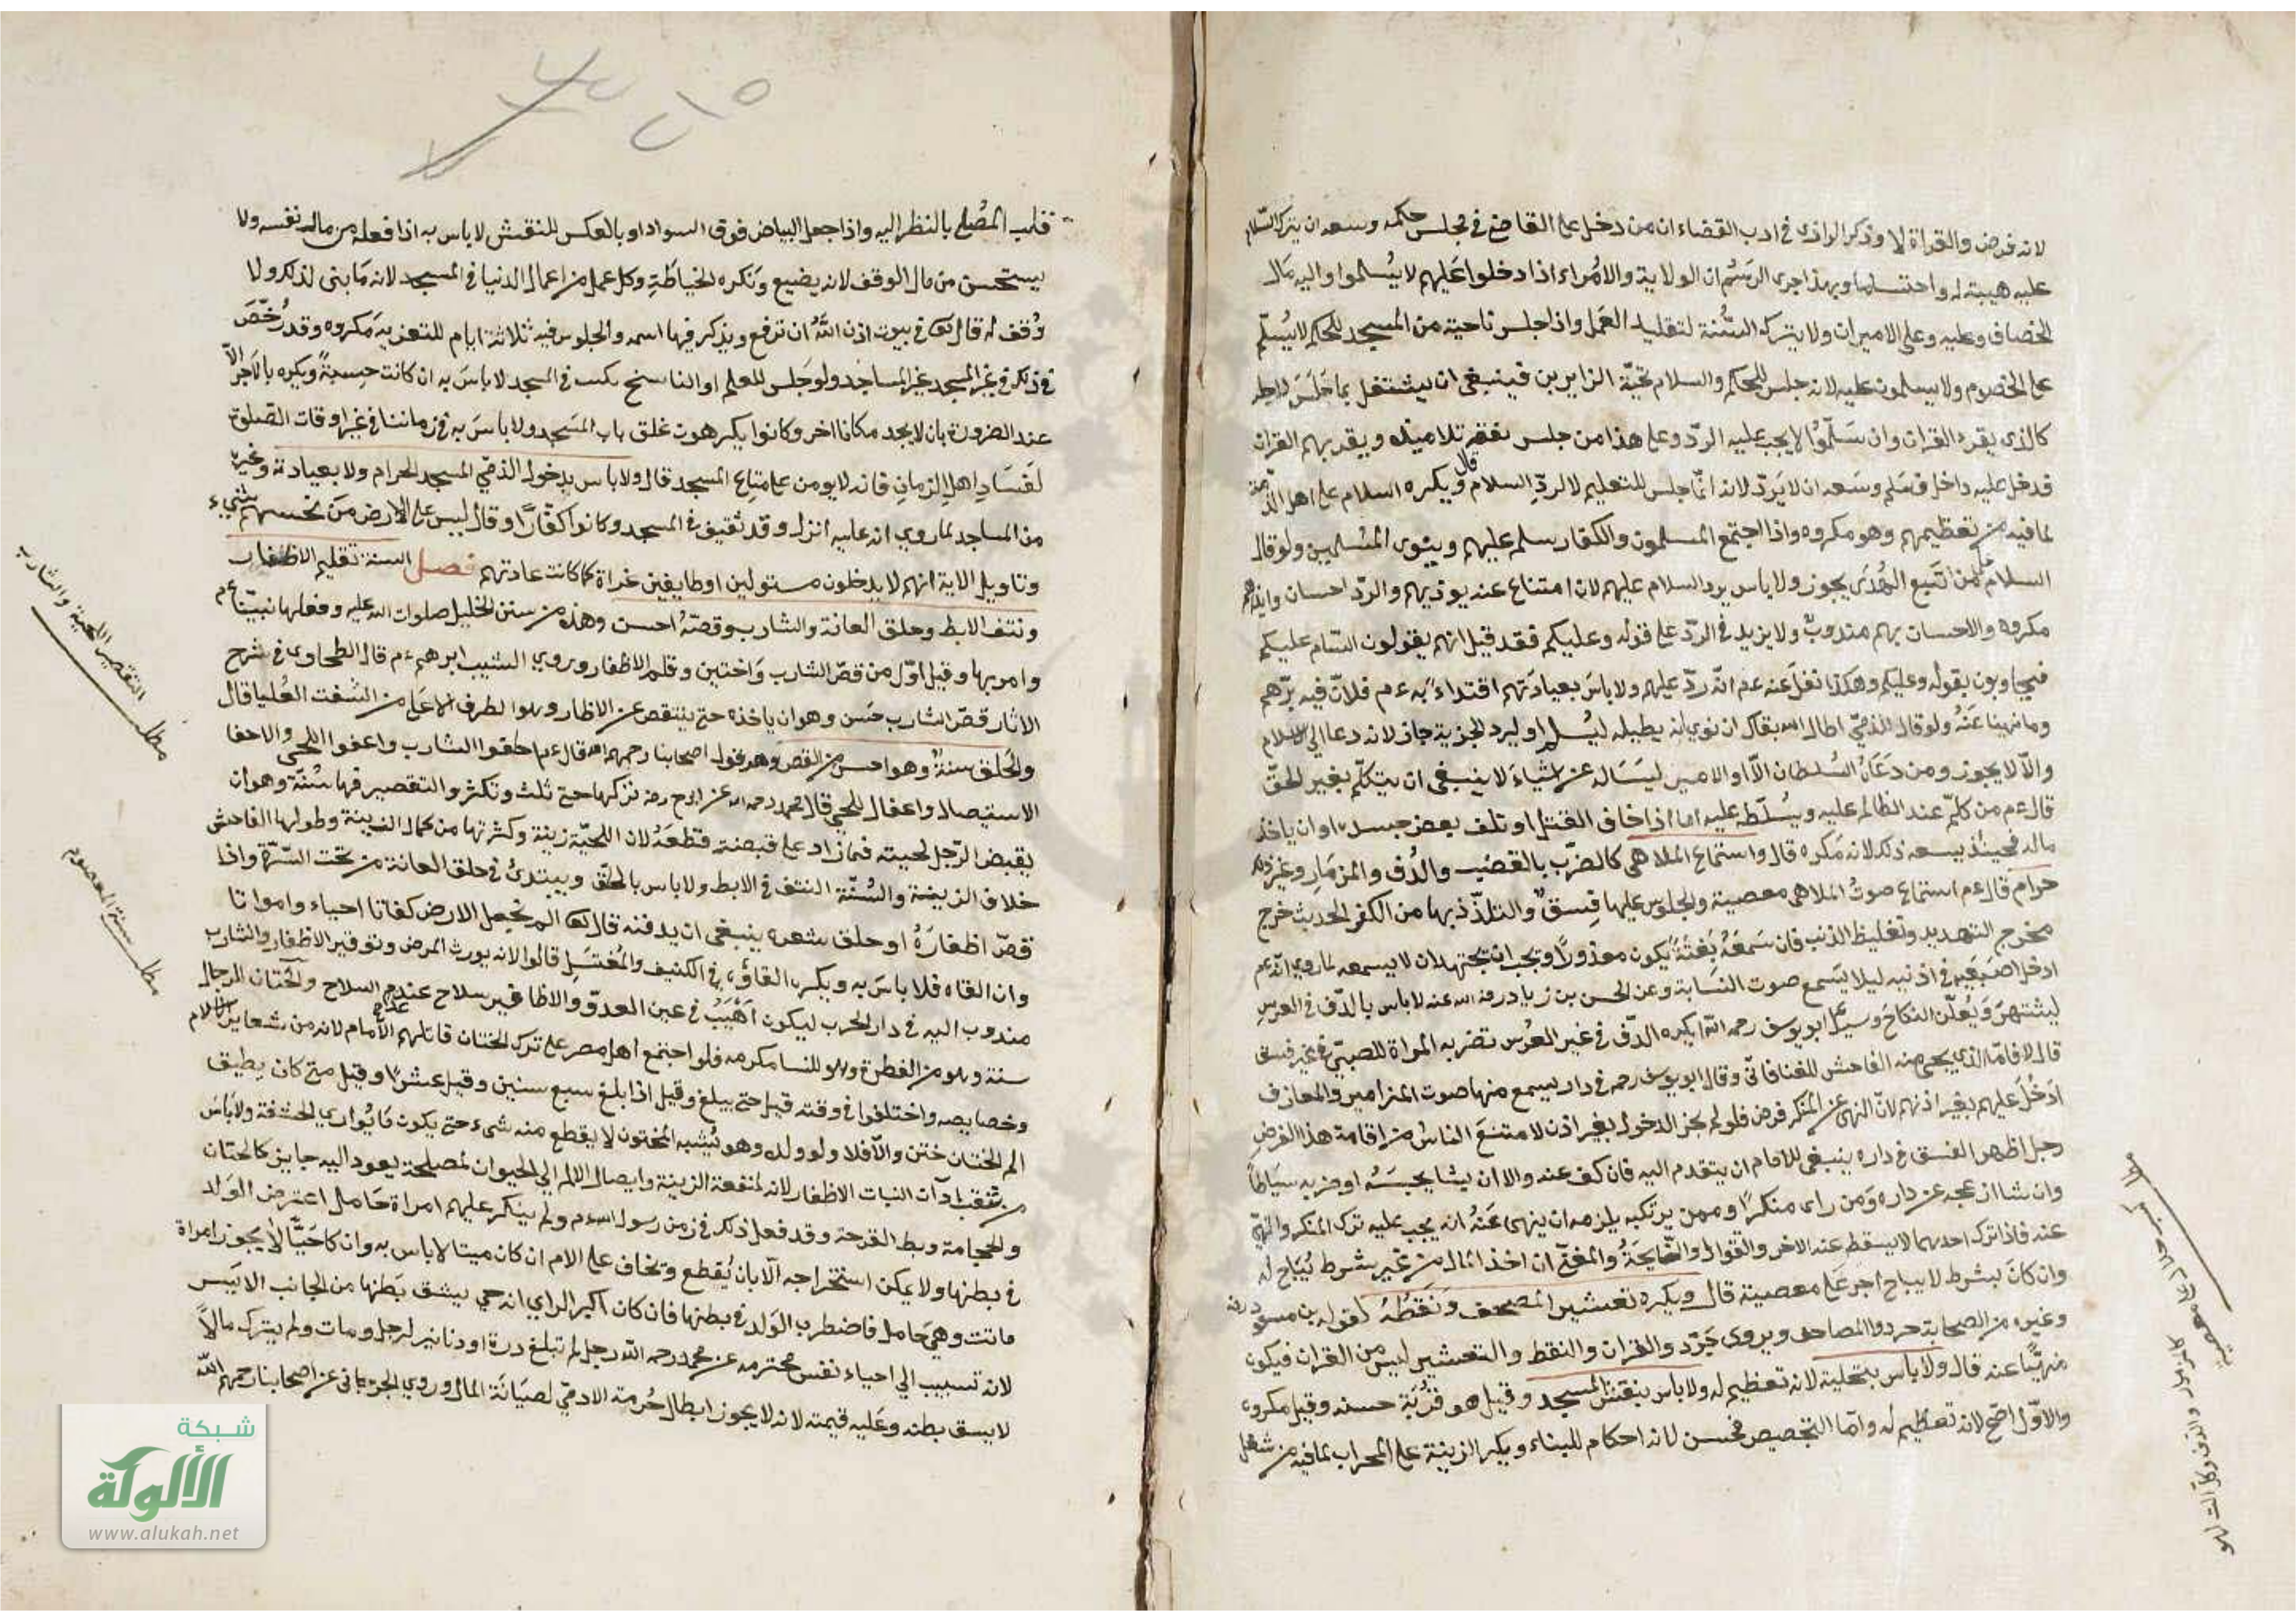 لانه فرض والقراة لا وذكر الرازى في ادب القضاء ان من دخل على القاضى في مجلس حكمه وسعه ان يترك السلام
عليه هيبته له واحتشاما وبهذا جرى الرسم ان الولاية والامراء اذا دخلوا عليهم لا يسلموا واليه مال
الخصاف وعليه وعلى الامير ان ولا يترك السنة لتقليد العمل واذا جلس ناحية من المسجد للحكم لا يسلم
على الخصوم ولا يسلمون عليه لانه جلس للحكم والسلام تحية الزايرين فينبغى ان يشتغل بما جلس لاجله
كالذى يقرء القران وان سلموا لا يجب عليه الرد وعلى هذا من جلس يفقه تلاميذه ويقريهم القران
فدخل عليه داخل فسلم وسعه ان لا يرد لانه انما جلس للتعليم لا لرد السلام قال ويكره السلام على اهل الذمة
لما فيه من تعظيمهم وهو مكروه واذا اجتمع المسلمون والكفار سلم عليهم وينوى المسلمين ولو قال
السلام على من اتبع الهدى يجوز ولا باس برد السلام عليهم لان امتناع عنه يوذيهم والرد احسان وايذاهم
مكروه والاحسان بهم مندوب ولا يزيد في الرد على قوله وعليكم فقد قيل انهم يقولون السام عليكم
فيجاوبون بقوله وعليكم وهكذا نقل عنه عم انه رد عليهم ولا باس بعيادتهم اقتداء به عم فلان فيه برهم
وما نهينا عنه ولو قال للذمى اطال الله بقاك ان نوى انه يطيله ليسلم او ليرد الجزية جاز لانه دعا الى الاسلام
والا لا يجوز ومن دعاه السلطان الا او الامير ليساله عن اشياء لا ينبغى ان يتكلم بغير الحق
قال عم من كلم عند الظالم عليه ويسلطه عليه اما اذا خاف القتل او تلف بعض جسده او ان ياخذ
ماله فحينئذ يسعه ذلك لانه مكره قال واستماع الملاهى كالضرب بالقضيب والدف والمزمار وغير ذلك
حرام قال عم استماع صوت الملاهى معصية والجلوس عليها فسق والتلذذ بها من الكفر الحديث خرج
مخرج التهديد وتغليظ الذنب فان سمعه بغتة يكون معذورا ويجب ان يجتهد ان لا يسمعه لما روى انه عم
ادخل اصبعيه في اذنيه ليلا يسمع صوت الشبابة وعن الحسن بن زياد رضى الله عنه لا باس بالدف في العرس
ليشتهر ويعلن النكاح وسيل ابو يوسف رحمه الله ايكره الدف في غير العرس تضربه المراة للصبي في غير فسق
قال لا فاما الذى يجى منه الفاحش للغنا فانى وقال ابو يوسف رحمه في دار يسمع منها صوت المزامير والمعازف
ادخل عليهم بغير اذنهم لان النهى عن المنكر فرض فلو لم يجز الدخول بغير اذن لامتنع الناس من اقامة هذا الفرض
رجل اظهر الفسق في داره ينبغى للامام ان يتقدم اليه فان كف عنه والا ان يشا يحبسه او ضربه سياطا
وان شا ازعجه عن داره ومن راى منكرا وممن يرتكبه يلزمه ان ينهى عنه انه يجب عليه ترك المنكر والنهى
عنه فاذا ترك احدهما لا يسقط عنه الاخر والقوال والنايحة والمغنى ان اخذ المال من غير شرط يباح له
وان كان بشرط لا يباح اجر على معصية قال ويكره تعشير المصحف ونقطه لقوله بن مسعود رضه
وغيره من الصحابة جردوا المصاحف ويروى جردوا القران والنقط والتعشير ليس من القران فيكون
منهيا عنه قال ولا باس بتحلية لانه تعظيم له ولا باس بنقش المسجد وقيل هو قربة حسنه وقيل مكروه
والاول اصح لانه تعظيم له واما التجصيص فحسن لانه احكام للبناء ويكره الزينة على المحراب لما فيه من شغل
كل مزمور والدف وكل الت لهو
قلب المصلى بالنظر اليه واذا جعل البياض فوق السواد او بالعكس للنقش لا باس به اذا فعله من مال نفسه ولا
يستحسن من مال الوقف لانه يضيع وتكره الخياطة وكل عمل من اعمال الدنيا في المسجد لانه ما بنى لذلك ولا
وقف له قال تعا في بيوت اذن الله ان ترفع ويذكر فيها اسمه والجلوس فيه ثلاثة ايام للتعزية مكروه وقد رخص
في ذلك في غير المسجد غير المساجد ولو جلس المعلم او الناسخ يكتب في المسجد لا باس به ان كانت حسبة ويكره بالاجر الا
عند الضرورة بان لا يجد مكانا اخر وكانوا يكرهون غلق باب المسجد ولا باس به في زماننا في غير اوقات الصلوة
لفساد اهل الزمان فانه لا يومن على متاع المسجد قال ولا باس بدخول الذمى المسجد الحرام ولا بعيادة وغيره
من المساجد لما روي انه عليه انزل وقد ثقيف في المسجد وكانوا كفارا وقال ليس على الارض من نجسهم شيء
وتاويل الاية انهم لا يدخلون مستولين او طايفين عراة كما كانت عادتهم فصل السنة تقليم الاظفار
ونتف الابط وحلق العانة والشارب وقصه احسن وهذه من سنن الخليل صلوات الله عليه وفعلها نبينا عم
وامر بها وقيل اول من قص الشارب واختين وقلم الاظفار وروي الشيب ابرهيم عم قال الطحاوى في شرح
الاثار قص الشارب حسن وهو ان ياخذه حتى ينتقص عن الاطار وهو الطرف الاعلى من الشفت العليا قال
والحلق سنة وهو احسن من القص وهو قول اصحابنا رحمهم الله قال عم احفوا الشارب واعفوا اللحى والاحفا
الاستيصال واعفاء اللحى قال محمد رحمه الله عن ابى ح رضه تركها حتى تلث وتكثر والتقصير فيها سنة وهو ان
يقبض الرجل لحيته فما زاد على قبضته قطعه لان اللحية زينة وكثرتها من كمال الزينة وطولها الفاحش
خلاف الزينة والسنة النتف في الابط ولا باس بالحلق ويبتدئ في حلق العانة من تحت السرة واذا
قص اظفاره او حلق شعره ينبغى ان يدفنه قال تعا الم نجعل الارض كفاتا احياء وامواتا
وان القاه فلا باس به ويكره القاؤه في الكنيف والمغتسل قالوا لانه يورث المرض وتوفير الاظفار والشارب
مندوب اليه في دار الحرب ليكون اهيب في عين العدو والاظافير سلاح عند عدم السلاح والختان للرجال
سنة وهو من الفطرة وهو للنسا مكرمه فلو اجتمع اهل مصر على ترك الختان قاتلهم الامام لانه من شعاير الاسلام
وخصايصه واختلفوا في وقته قيل حتى يبلغ وقيل اذا بلغ سبع سنين وقيل عشرا وقيل متى كان يطيق
الم الختان ختن والا فلا ولو ولد وهو يشبه المختون لا يقطع منه شىء حتى يكون ما يواري الحشفة ولا باس
من ثقب اذان النبات الاظفار لانه لمنفعة الزينة وايصال الالم الي الحيوان لمصلحة يعود اليه جايز كالختان
والحجامة وبط القرحة وقد فعل ذلك في زمن رسول الله عم ولم ينكر عليهم امراة حامل اعترض الولد
في بطنها ولا يمكن استخراجه الا بان يقطع وتخاف على الام ان كان ميتا لا باس به وان كا حيا لا يجوز امراة
ماتت وهي حامل فاضطرب الولد في بطنها فان كان اكبر الراي انه حي يشق بطنها من الجانب الايسر
لانه تسبيب الي احياء نفس محترمه عن محمد رحمه الله رجل لم تبلغ درة او دنانير لرجل ومات ولم يترك مالا
لا يسق بطنه وعليه قيمته لانه لا يجوز ابطال حرمة الادمى لصيانة المال وروي الجرجانى عن اصحابنا رحمهم الله
مطلب التقصير اللحية والشارب
شبكة
الألوكة
www.alukah.net